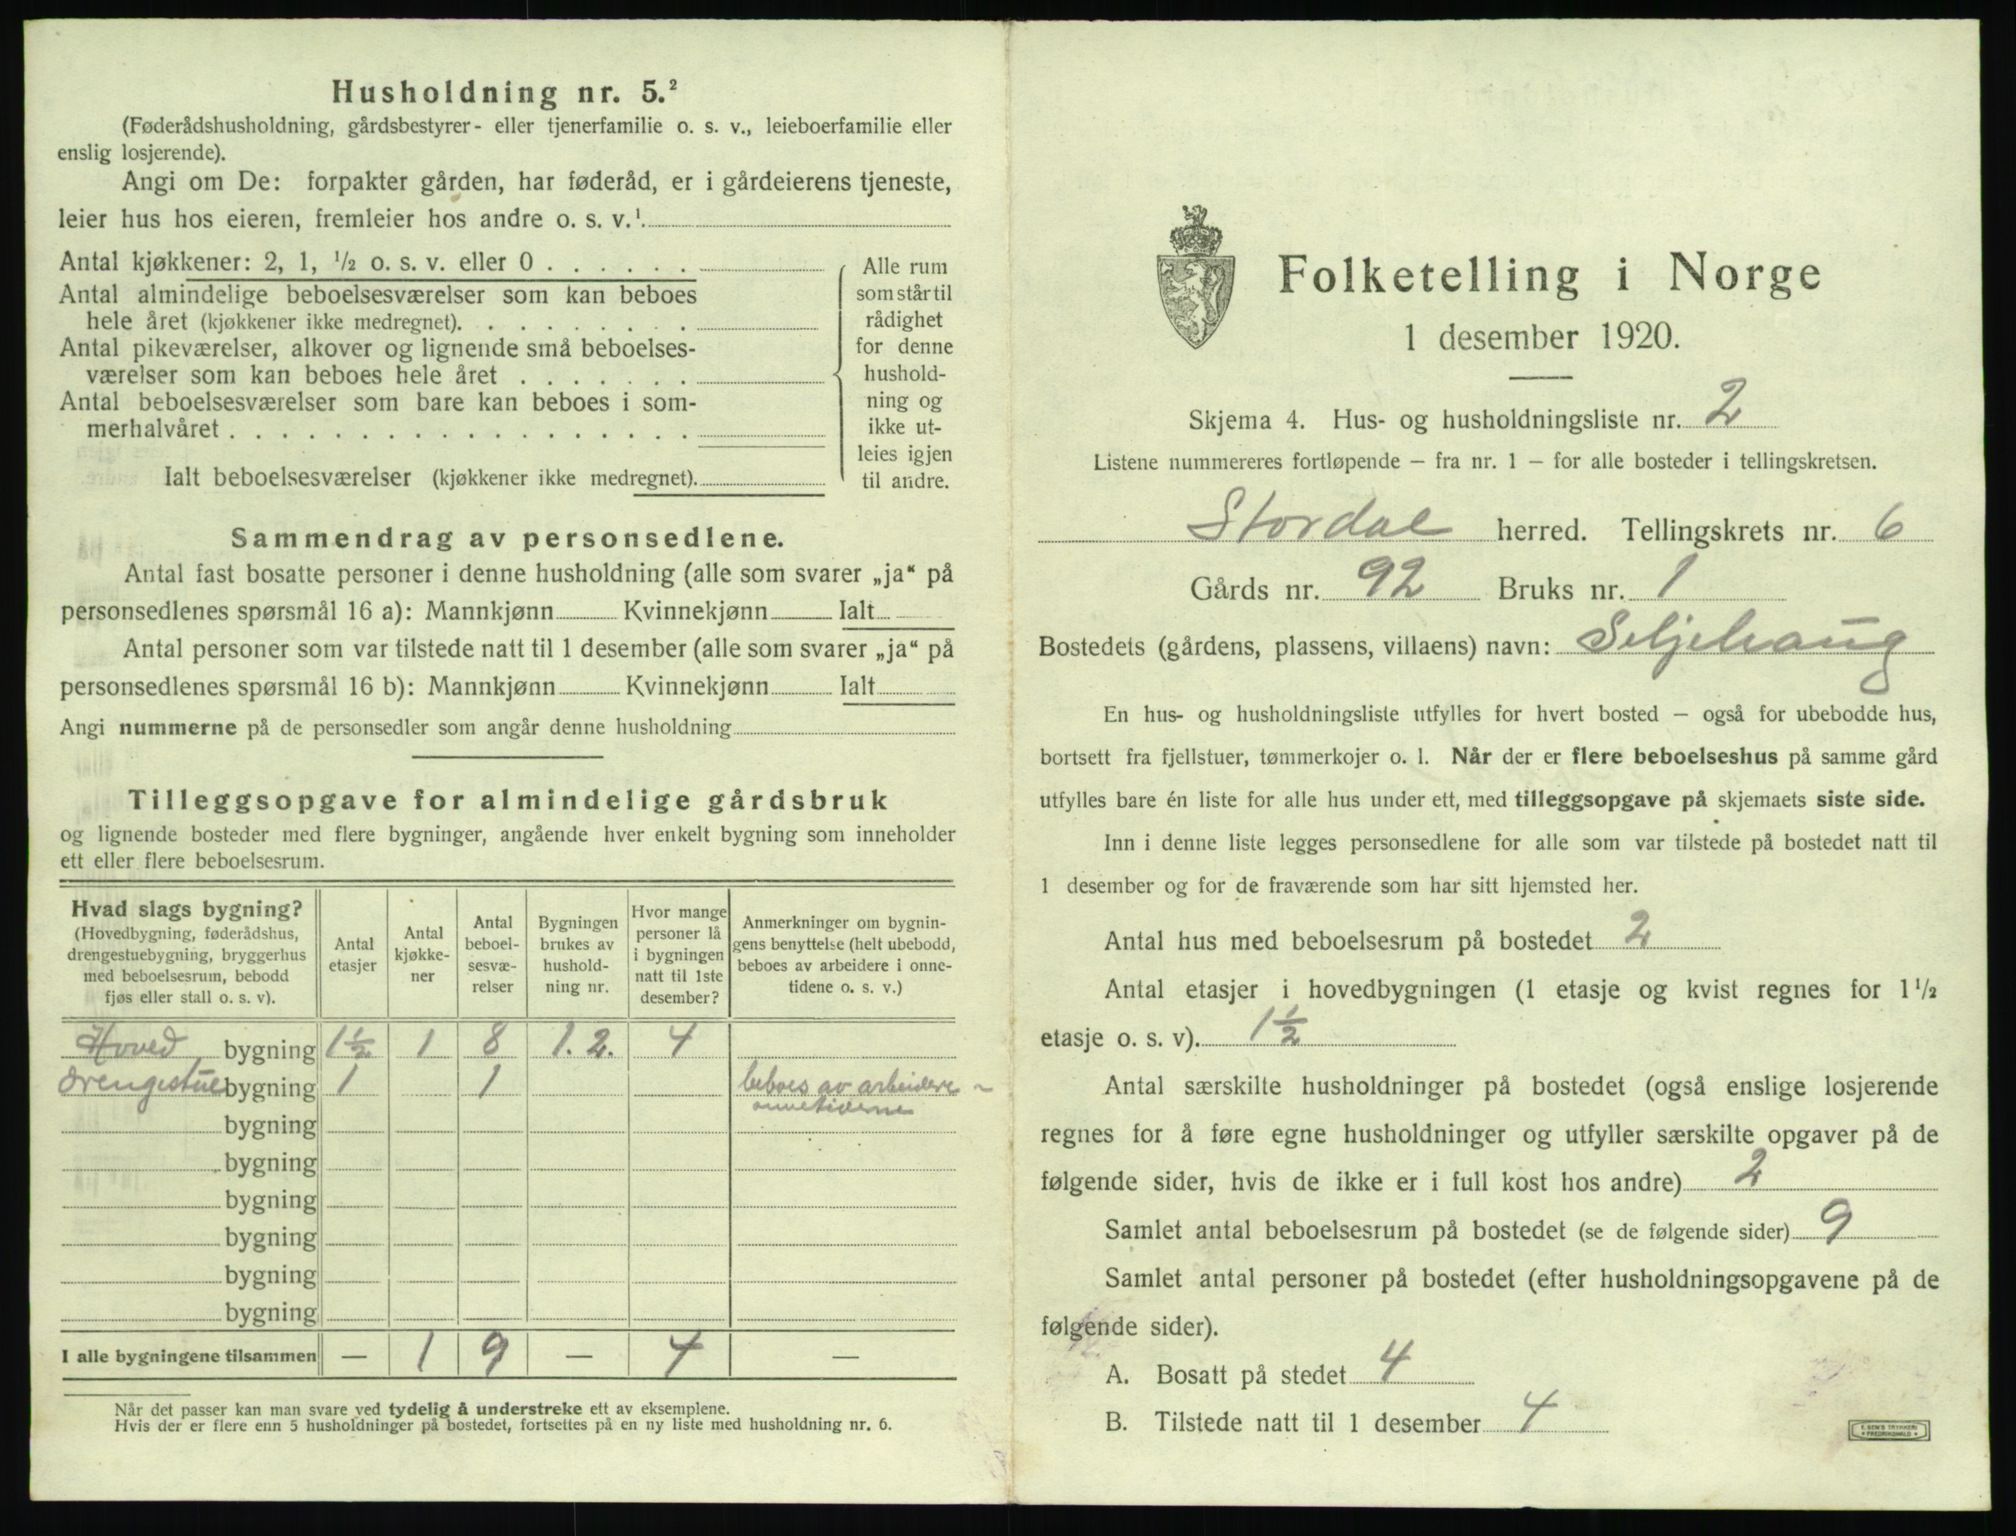 Husholdning nr. 5.²
(Føderådshusholdning, gårdsbestyrer- eller tjenerfamilie o. s. v., leieboerfamilie eller
enslig losjerende).
Angi om De: forpakter gården, har føderåd, er i gårdeierens tjeneste,
leier hus hos eieren, fremleier hos andre o. s. v.¹
Antal kjøkkener: 2, 1, ½ o. s. v. eller 0
Antal almindelige beboelsesværelser som kan beboes
hele året (kjøkkener ikke medregnet).
Antal pikeværelser, alkover og lignende små beboelses-
værelser som kan beboes hele året
Antal beboelsesværelser som bare kan beboes i som-
merhalvåret
Ialt beboelsesværelser (kjøkkener ikke medregnet).
Alle rum
som står til
rådighet
for denne
hushold-
ning og
ikke ut-
leies igjen
til andre.
Sammendrag av personsedlene.
Antal fast bosatte personer i denne husholdning (alle som svarer „ja“ på
personsedlenes spørsmål 16 a): Mannkjønn Kvinnekjønn Ialt
Antal personer som var tilstede natt til 1 desember (alle som svarer „ja“ på
personsedlenes spørsmål 16 b): Mannkjønn Kvinnekjønn Ialt
Angi nummerne på de personsedler som angår denne husholdning
Tilleggsopgave for almindelige gårdsbruk
og lignende bosteder med flere bygninger, angående hver enkelt bygning som inneholder
ett eller flere beboelsesrum.
Hvad slags bygning?
(Hovedbygning, føderådshus,
drengestuebygning, bryggerhus
med beboelsesrum, bebodd
fjøs eller stall o. s. v).
Antal
etasjer
Antal
kjøkke-
ner
Antal
beboel-
sesvæ-
relser
Bygningen
brukes av
hushold-
ning nr.
Hvor mange
personer lå
i bygningen
natt til 1ste
desember?
Anmerkninger om bygnin-
gens benyttelse (helt ubebodd,
beboes av arbeidere i onne-
tidene o. s. v.)
Hoved bygning 1½ 1 8 1. 2. 4
Drengestue bygning 1 1 beboes av arbeidere
onnetiderne
bygning
bygning
bygning
bygning
bygning
bygning
I alle bygningene tilsammen — 1 9 — 4 —
Når det passer kan man svare ved tydelig å understreke ett av eksemplene.
Hvis der er flere enn 5 husholdninger på bostedet, fortsettes på en ny liste med husholdning nr. 6.
Folketelling i Norge
1 desember 1920.
Skjema 4. Hus- og husholdningsliste nr. 2
Listene nummereres fortløpende – fra nr. 1 – for alle bosteder i tellingskretsen.
Stordal herred. Tellingskrets nr. 6
Gårds nr. 92 Bruks nr. 1
Bostedets (gårdens, plassens, villaens) navn: Seljehaug
En hus- og husholdningsliste utfylles for hvert bosted – også for ubebodde hus,
bortsett fra fjellstuer, tømmerkojer o. l. Når der er flere beboelseshus på samme gård
utfylles bare én liste for alle hus under ett, med tilleggsopgave på skjemaets siste side.
Inn i denne liste legges personsedlene for alle som var tilstede på bostedet natt til
1 desember og for de fraværende som har sitt hjemsted her.
Antal hus med beboelsesrum på bostedet 2
Antal etasjer i hovedbygningen (1 etasje og kvist regnes for 1½
etasje o. s. v). 1½
Antal særskilte husholdninger på bostedet (også enslige losjerende
regnes for å føre egne husholdninger og utfyller særskilte opgaver på de
følgende sider, hvis de ikke er i full kost hos andre) 2
Samlet antal beboelsesrum på bostedet (se de følgende sider) 9
Samlet antal personer på bostedet (efter husholdningsopgavene på de
følgende sider).
A. Bosatt på stedet 4
B. Tilstede natt til 1 desember 4